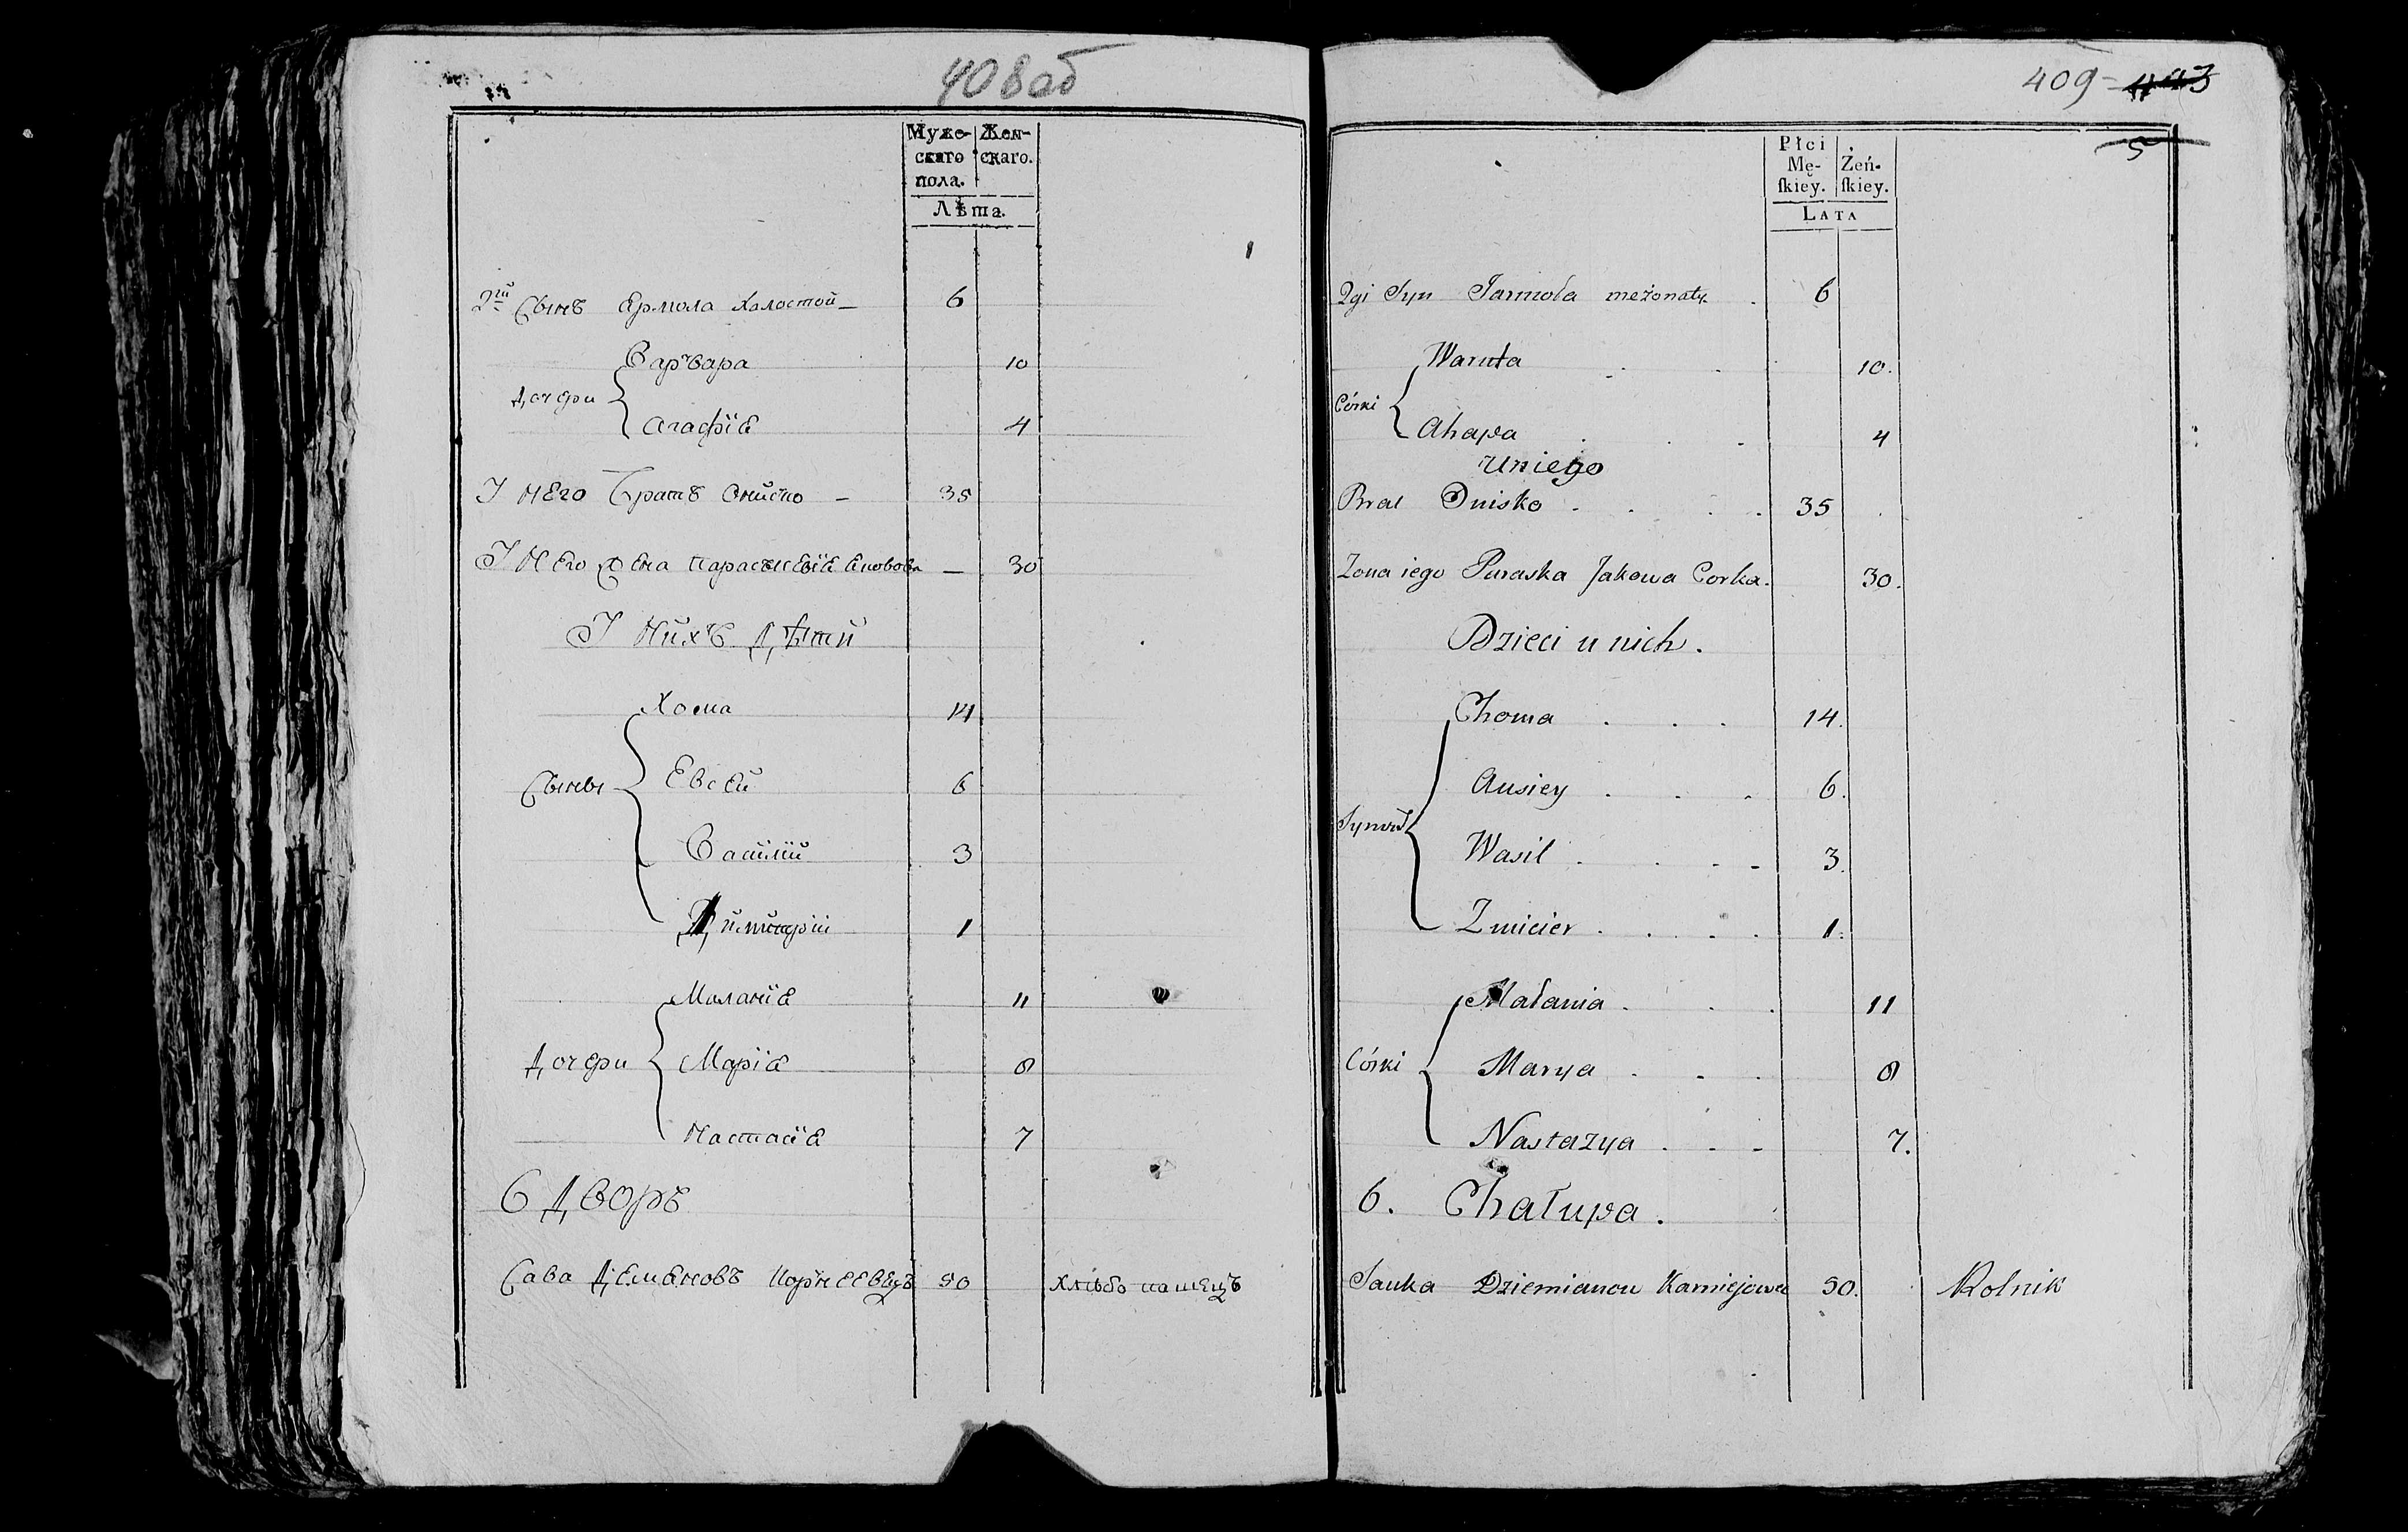 408об
Муже-
скаго
пола.
Жен-
скаго.
Лѣта.
2й Сынъ Ермола Холостой — 6
Варвара 10
Дочери
Агафія 4
У него Братъ Онисько — 35
У Него Жена Парасковія Яковова — 30
У Нихъ Дѣти
Хома 14
Сыны
Евсей 6
Василій 3
Димитрій 1
Маланія 11
Дочери
Марія 8
Настасія 7
6 Дворъ
Сава Демяновъ Корнеевецъ 50 Хлѣбопашецъ
409 - 443
5
Płci
Mę-
skiey.
Żeń-
skiey.
LATA
2gi Syn Jarmoła nieżonaty. 6
Waruta 10.
Córki
Ahapa 4
u niego
Brat Onisko 35
Zona iego Paraska Jakowa Corka. 30.
Dzieci u nich.
Choma 14.
Ausiey 6.
Synowie
Wasil 3.
Zmicier 1.
Małania 11
Córki
Marya 8
Nastazya 7.
6. Chałupa.
Sauka Dziemianow Karniejowec 50. Rolnik